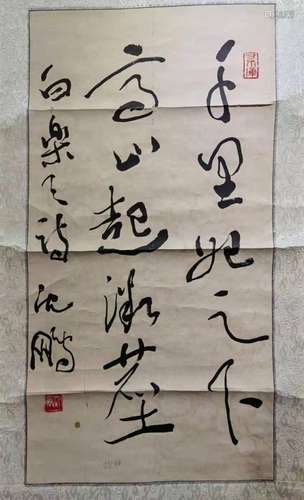 千里始足下
高山起微塵
白樂天詩 沈鵬